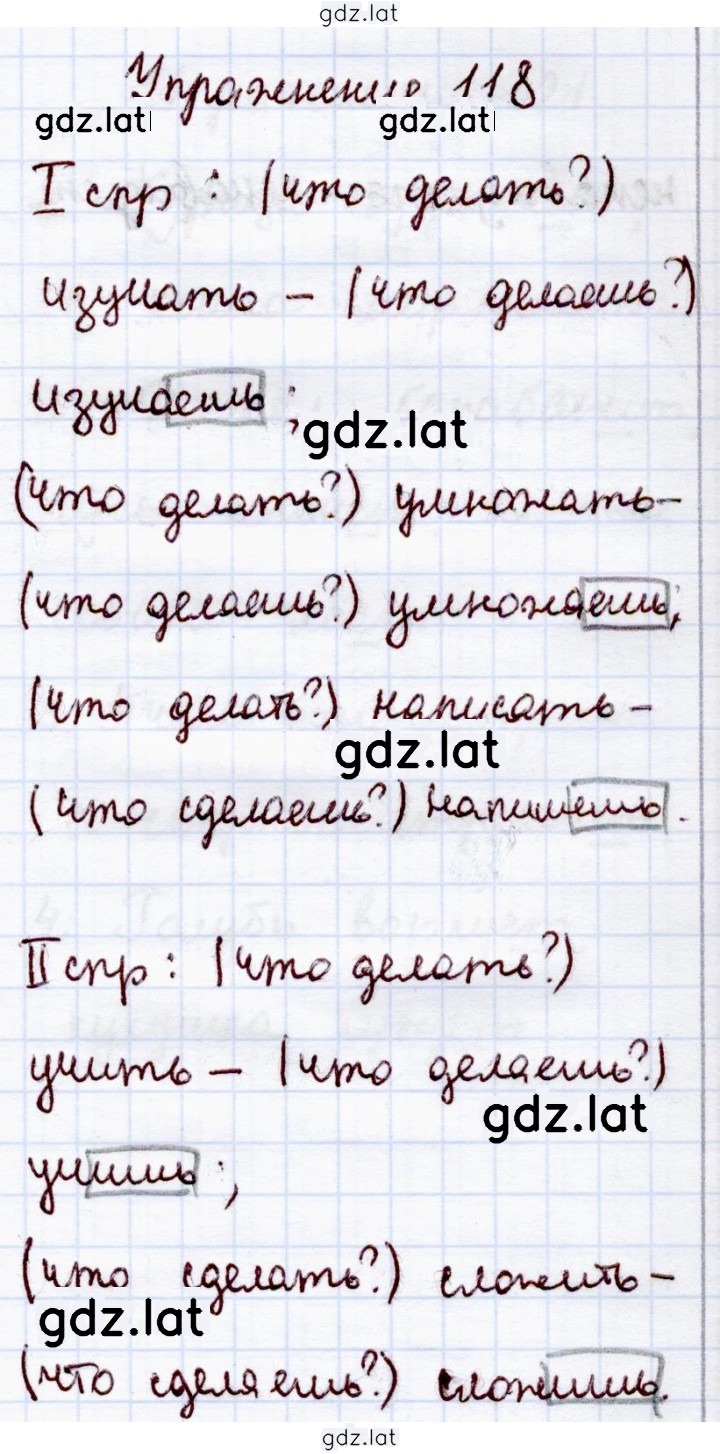 gdz.lat
Упражнение 118
gdz.lat gdz.lat
I спр: (что делать?)
изучать – (что делаешь?)
изучаешь;
gdz.lat
(что делать?) умножать-
(что делаешь?) умножаешь;
(что делать?) написать-
gdz.lat
(что сделаешь?) напишешь.
II спр: (что делать?)
учить – (что делаешь?)
gdz.lat
учишь;
(что сделать?) сложить-
gdz.lat
(что сделяешь?) сложишь.
gdz.lat